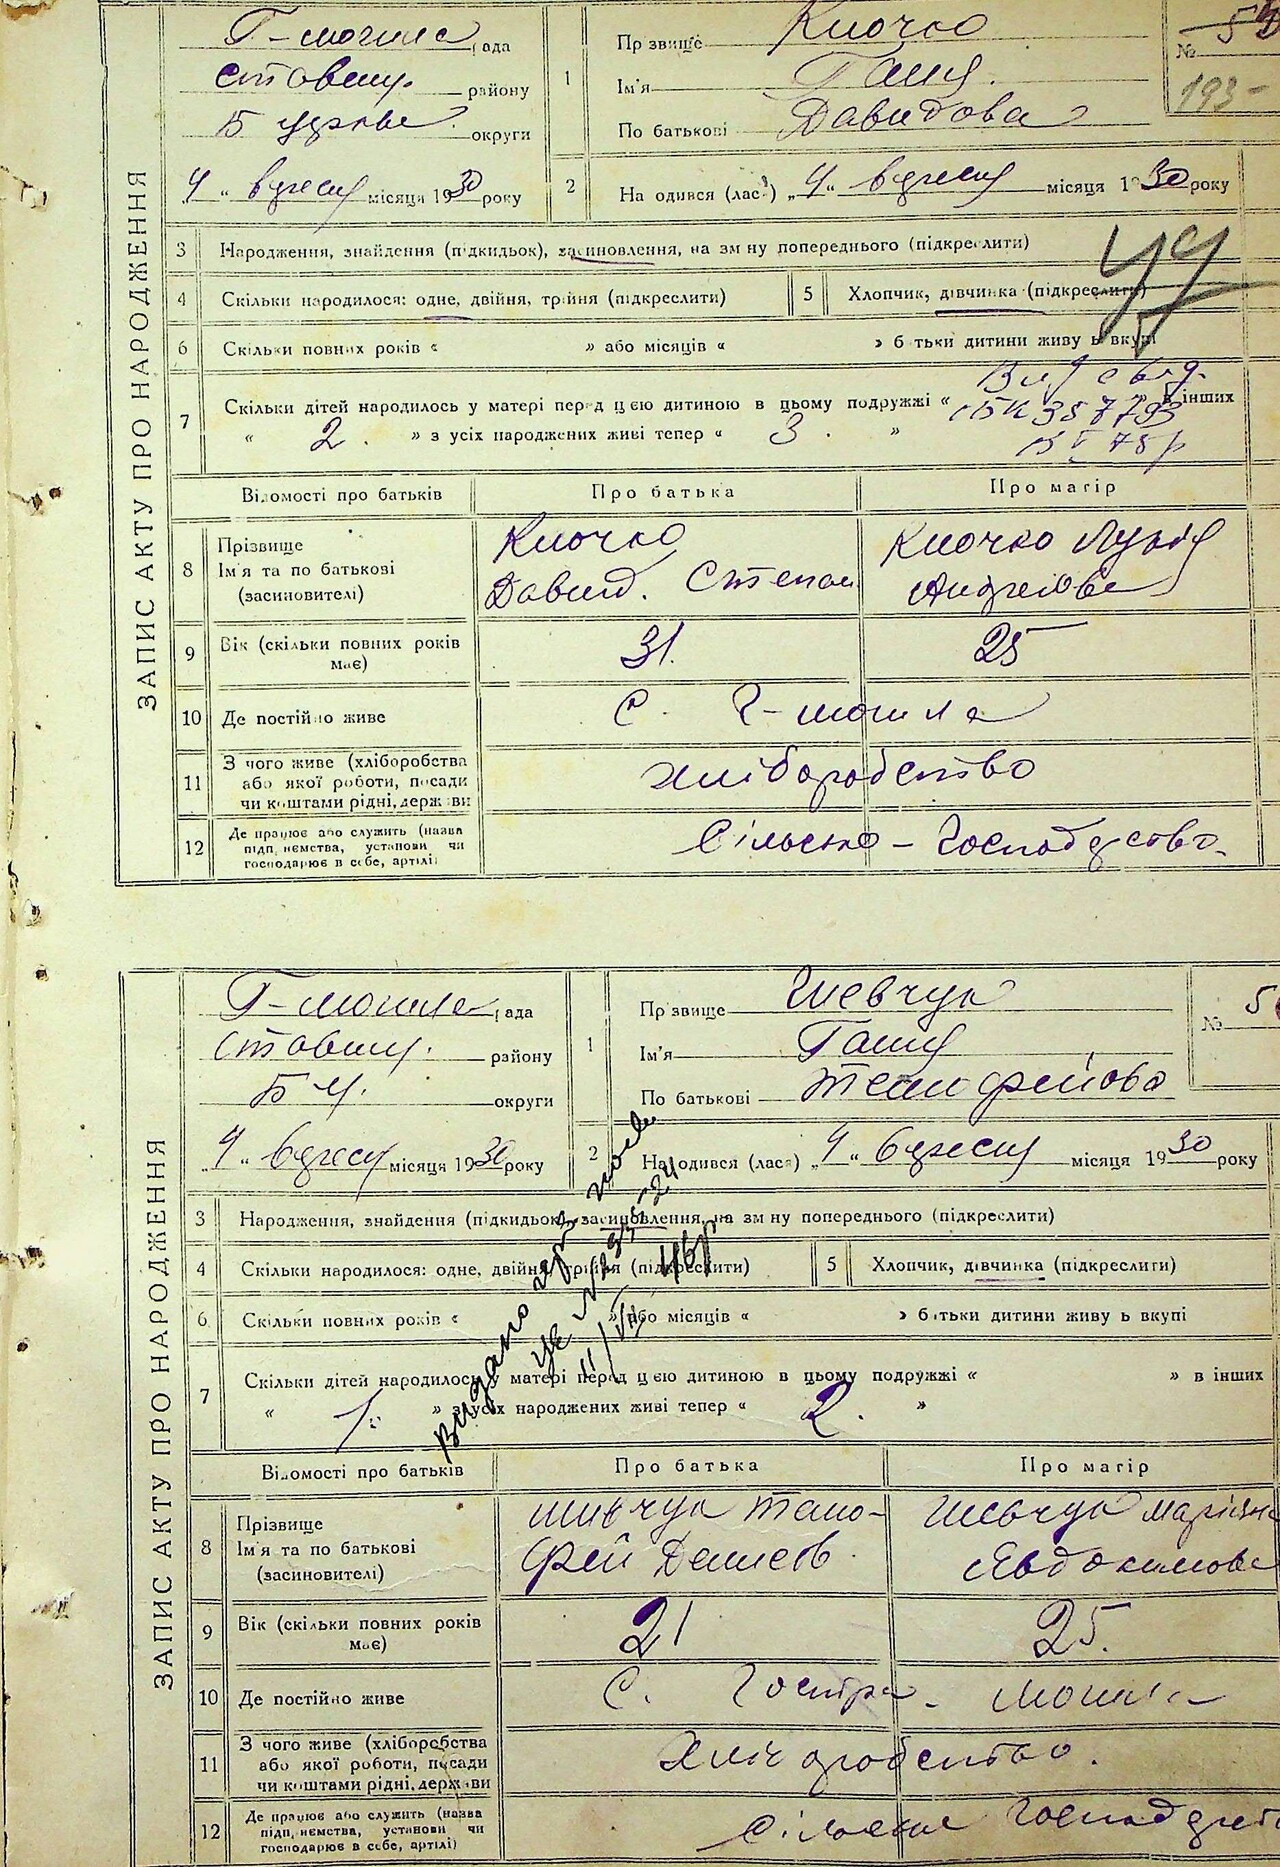 ЗАПИС АКТУ ПРО НАРОДЖЕННЯ
Г-могила рада
Ставищ. району
Б церкве округи
4 " вересня місяця 1930 року
1 Прізвище Клочко
Ім'я Ганя.
По батькові Давидова
№ 53
193-
2 Народився (лась) „ 4 " вересня місяця 1930 року
3 Народження, знайдення (підкидьок), засиновлення, на зміну попереднього (підкреслити)
4 Скільки народилося: одне, двійня, трійня (підкреслити) 5 Хлопчик, дівчинка (підкреслити)
6 Скільки повних років « » або місяців « » батьки дитини живуть вкупі
7 Скільки дітей народилось у матері перед цією дитиною в цьому подружжі « в інших
« 2. » з усіх народжених живі тепер « 3. »
Відомості про батьків Про батька Про матір
8 Прізвище Ім'я та по батькові (засиновителі)
Клочко Давид. Степан
Клочко Лукія Андреёва
9 Вік (скільки повних років має) 31. 25
10 Де постійно живе С. Г-могила
11 З чого живе (хліборобства або якої роботи, посади чи коштами рідні, держави хліборобство
12 Де працює або служить (назва підприємства, установи чи господарює в себе, артілі) Сільсько-Господарство.
ЗАПИС АКТУ ПРО НАРОДЖЕННЯ
Г-могила рада
Ставищ. району
Б Ц. округи
„ 4 " вересня місяця 1930 року
1 Прізвище Шевчук
Ім'я Ганя
По батькові Темофейова
№ 5
2 Народився (лась) „ 4 " вересня місяця 1930 року
3 Народження, знайдення (підкидьок), засиновлення, на зміну попереднього (підкреслити)
4 Скільки народилося: одне, двійня, трійня (підкреслити) 5 Хлопчик, дівчинка (підкреслити)
6 Скільки повних років « » або місяців « » батьки дитини живуть вкупі
7 Скільки дітей народилось у матері перед цією дитиною в цьому подружжі « » в інших
« 1. » з усіх народжених живі тепер « 2. »
Видано
Відомості про батьків Про батька Про матір
8 Прізвище Ім'я та по батькові (засиновителі)
Шивчук Темофей Денисов
Шевчук Маріяна Явдокимова
9 Вік (скільки повних років має) 21 25.
10 Де постійно живе С. Гостра-Могила
11 З чого живе (хліборобства або якої роботи, посади чи коштами рідні, держави Хліборобство.
12 Де працює або служить (назва підприємства, установи чи господарює в себе, артілі)